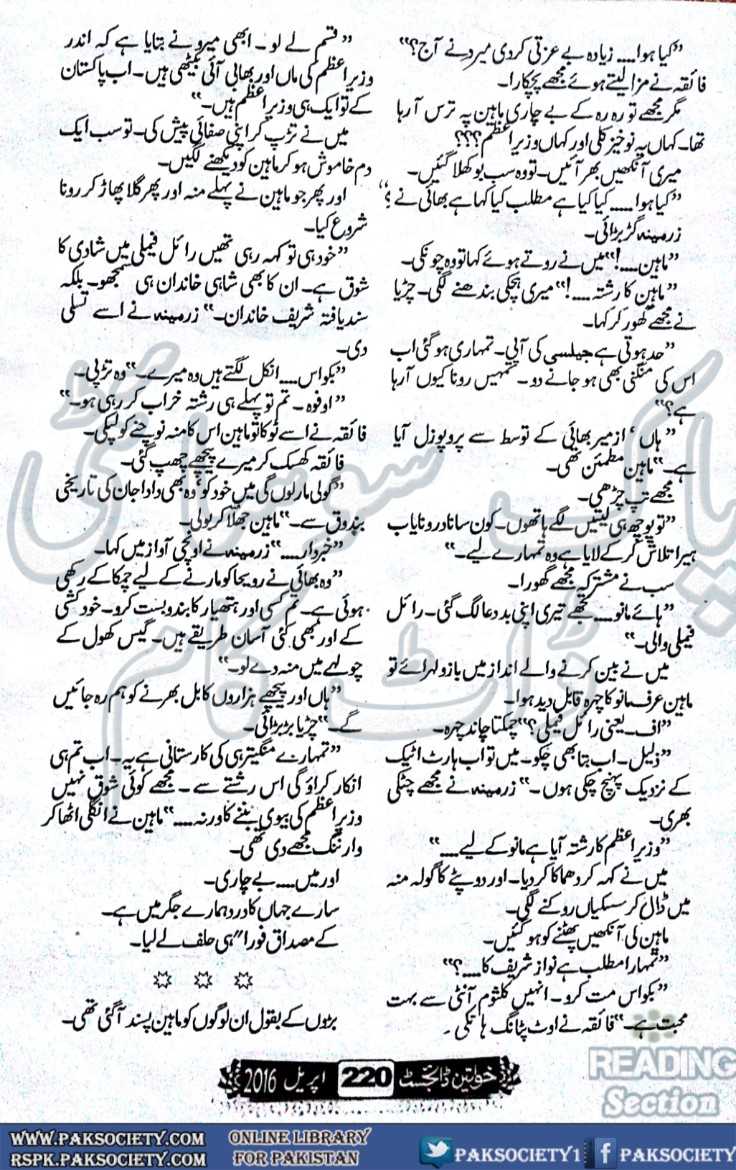 ”کیا ہوا.... زیادہ بے عزتی کردی میرونے آج؟“
فائقہ نے مزا لیتے ہوئے مجھے پچکارا۔
مگر مجھے تو رہ رہ کے بے چاری ماہین پہ ترس آرہا
تھا۔ کہاں یہ نوخیز کلی اور کہاں وزیراعظم؟؟؟
میری آنکھیں بھر آئیں۔ تو وہ سب بوکھلا گئیں۔
”کیا ہوا.... کیا کیا ہے مطلب کیا کہا ہے بھائی نے؟“
زرمینہ گڑبڑائی۔
”ماہین....!“ میں نے روتے ہوئے کہا تو وہ چونکی۔
”ماہین کا رشتہ....!“ میری ہچکی بندھنے لگی۔ چڑیا
نے مجھے گھور کر کہا۔
”حد ہوتی ہے جیلسی کی آپی۔ تمہاری ہوگئی اب
اس کی منگنی بھی ہو جانے دو۔ تمہیں رونا کیوں آرہا
ہے؟“
”ہاں‘ ازمیر بھائی کے توسط سے پروپوزل آیا
ہے۔“ ماہین مطمئن تھی۔
مجھے تپ چڑھی۔
”تو پوچھ ہی لیتیں لگے ہاتھوں۔ کون سا نادر و نایاب
ہیرا تلاش کر کے لایا ہے وہ تمہارے لیے۔“
سب نے مشترکہ مجھے گھورا۔
”ہائے مانو.... مجھے تیری اپنی بددعا لگ گئی۔ رائل
فیملی والی۔“
میں نے بین کرنے والے انداز میں بازو لہرائے تو
ماہین عرف مانو کا چہرہ قابل دید ہوا۔
”اف۔ یعنی رائل فیملی؟“ چمکتا چاند چہرہ۔
”ذلیل۔ اب بتا بھی چکو۔ میں تو اب ہارٹ اٹیک
کے نزدیک پہنچ چکی ہوں۔“ زرمینہ نے مجھے چٹکی
بھری۔
”وزیراعظم کا رشتہ آیا ہے مانو کے لیے....“
میں نے کہہ کر دھماکا کردیا۔ اور دوپٹے کا گولہ منہ
میں ڈال کر سسکیاں روکنے لگی۔
ماہین کی آنکھیں پھٹنے کو ہو گئیں۔
”تمہارا مطلب ہے نواز شریف کا....؟“
”بکواس مت کرو۔ انہیں کلثوم آنٹی سے بہت
محبت ہے۔“ فائقہ نے اوٹ پٹانگ ہانکی۔
”قسم لے لو۔ ابھی میرو نے بتایا ہے کہ اندر
وزیراعظم کی ماں اور بھابی آئی بیٹھی ہیں۔ اب پاکستان
کے تو ایک ہی وزیراعظم ہیں۔“
میں نے تڑپ کر اپنی صفائی پیش کی۔ تو سب ایک
دم خاموش ہو کر ماہین کو دیکھنے لگیں۔
اور پھر جو ماہین نے پہلے منہ اور پھر گلا پھاڑ کر رونا
شروع کیا۔
”خود ہی تو کہہ رہی تھیں رائل فیملی میں شادی کا
شوق ہے۔ ان کا بھی شاہی خاندان ہی سمجھو۔ بلکہ
سند یافتہ شریف خاندان۔“ زرمینہ نے اسے تسلی
دی۔
”بکواس.... انکل لگتے ہیں وہ میرے۔“ وہ تڑپی۔
”اوفوہ۔ تم تو پہلے ہی رشتہ خراب کر رہی ہو۔“
فائقہ نے اسے ٹوکا تو ماہین اس کا منہ نوچنے کو لپکی۔
فائقہ کھسک کر میرے پیچھے چھپ گئی۔
”گولی مارلوں گی میں خود کو‘ وہ بھی دادا جان کی تاریخی
بندوق سے۔“ ماہین جھلا کر بولی۔
”خبردار....“ زرمینہ نے اونچی آواز میں کہا۔
”وہ بھائی نے رویحا کو مارنے کے لیے چمکا کے رکھی
ہوئی ہے۔ تم کسی اور ہتھیار کا بندوبست کرو۔ خودکشی
کے اور بھی کئی آسان طریقے ہیں۔ گیس کھول کے
چولہے میں منہ دے لو۔“
”ہاں اور پیچھے ہزاروں کا بل بھرنے کو ہم رہ جائیں
گے۔“ چڑیا بڑبڑائی۔
”تمہارے منگیتر ہی کی کارستانی ہے یہ۔ اب تم ہی
انکار کراؤ گی اس رشتے سے۔ مجھے کوئی شوق نہیں
وزیراعظم کی بیوی بننے کا ورنہ....“ ماہین نے انگلی اٹھا کر
وارننگ مجھے دی تھی۔
اور میں.... بے چاری۔
سارے جہاں کا درد ہمارے جگر میں ہے۔
کے مصداق فورا"ہی حلف لے لیا۔
☆ ☆ ☆
بڑوں کے بقول ان لوگوں کو ماہین پسند آگئی تھی۔
خواتین ڈائجسٹ 220 اپریل 2016
READING
Section
پاک سوسائٹی
ڈاٹ کام
WWW.PAKSOCIETY.COM
RSPK.PAKSOCIETY.COM
ONLINE LIBRARY
FOR PAKISTAN
PAKSOCIETY1
PAKSOCIETY